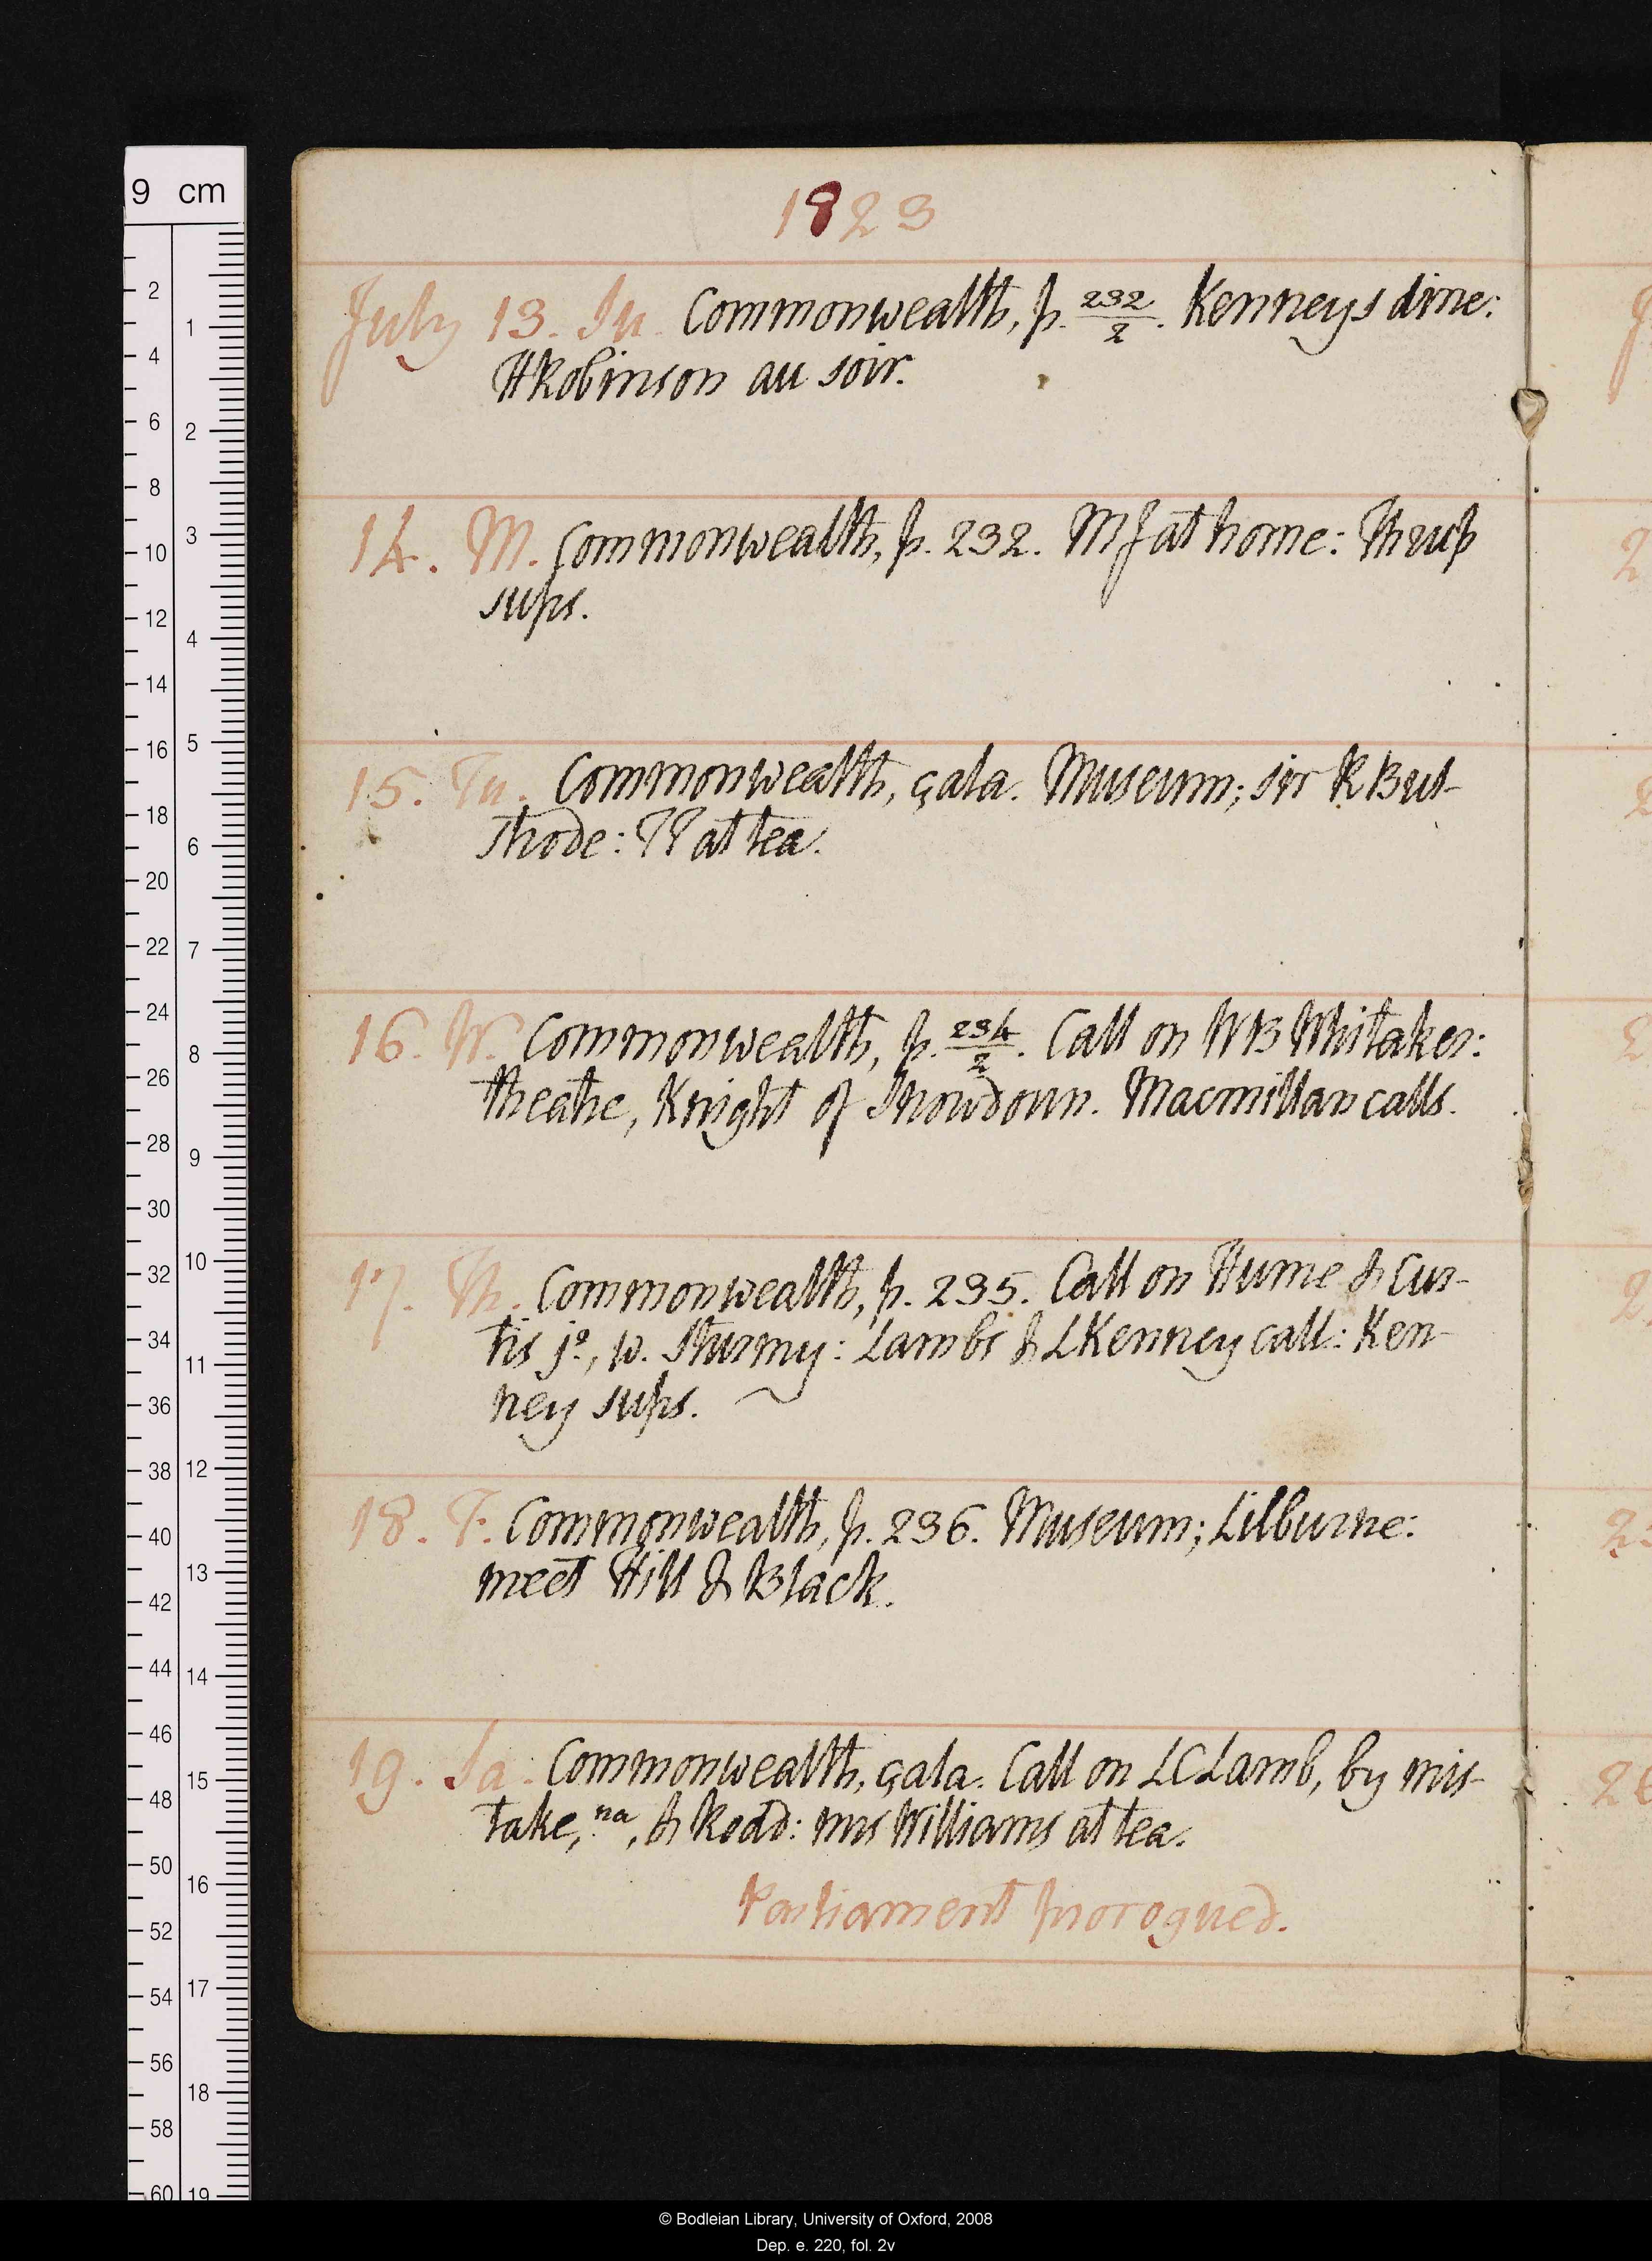 1823
July 13. Su. Commonwealth, p. 232/2. Kenneys dine:
HRobinson au soir.
14. M. Commonwealth, p. 232. MJ at home: Thrup
sups.
15. Tu. Commonwealth, çala. Museum; sir R Bul-
strode: TP at tea.
16. W. Commonwealth, p. 234/2. Call on WB Whitaker:
theatre, Knight of Snowdoun. Macmillan calls.
17. Th. Commonwealth, p. 235. Call on Hume & Cur-
tis jº., w. Sturmy: Lambs & LKenney call: Ken-
ney sups.
18. F. Commonwealth, p. 236. Museum; Lilburne:
meet Hill & Black.
19. Sa. Commonwealth, çala. Call on LCLamb, by mis-
take, na, & Rodd: mrs Williams at tea.
Parliament prorogued.
9 cm
2
4
6
8
10
12
14
16
18
20
22
24
26
28
30
32
34
36
38
40
42
44
46
48
50
52
54
56
58
60
1
2
3
4
5
6
7
8
9
10
11
12
13
14
15
16
17
18
19
© Bodleian Library, University of Oxford, 2008
Dep. e. 220, fol. 2v